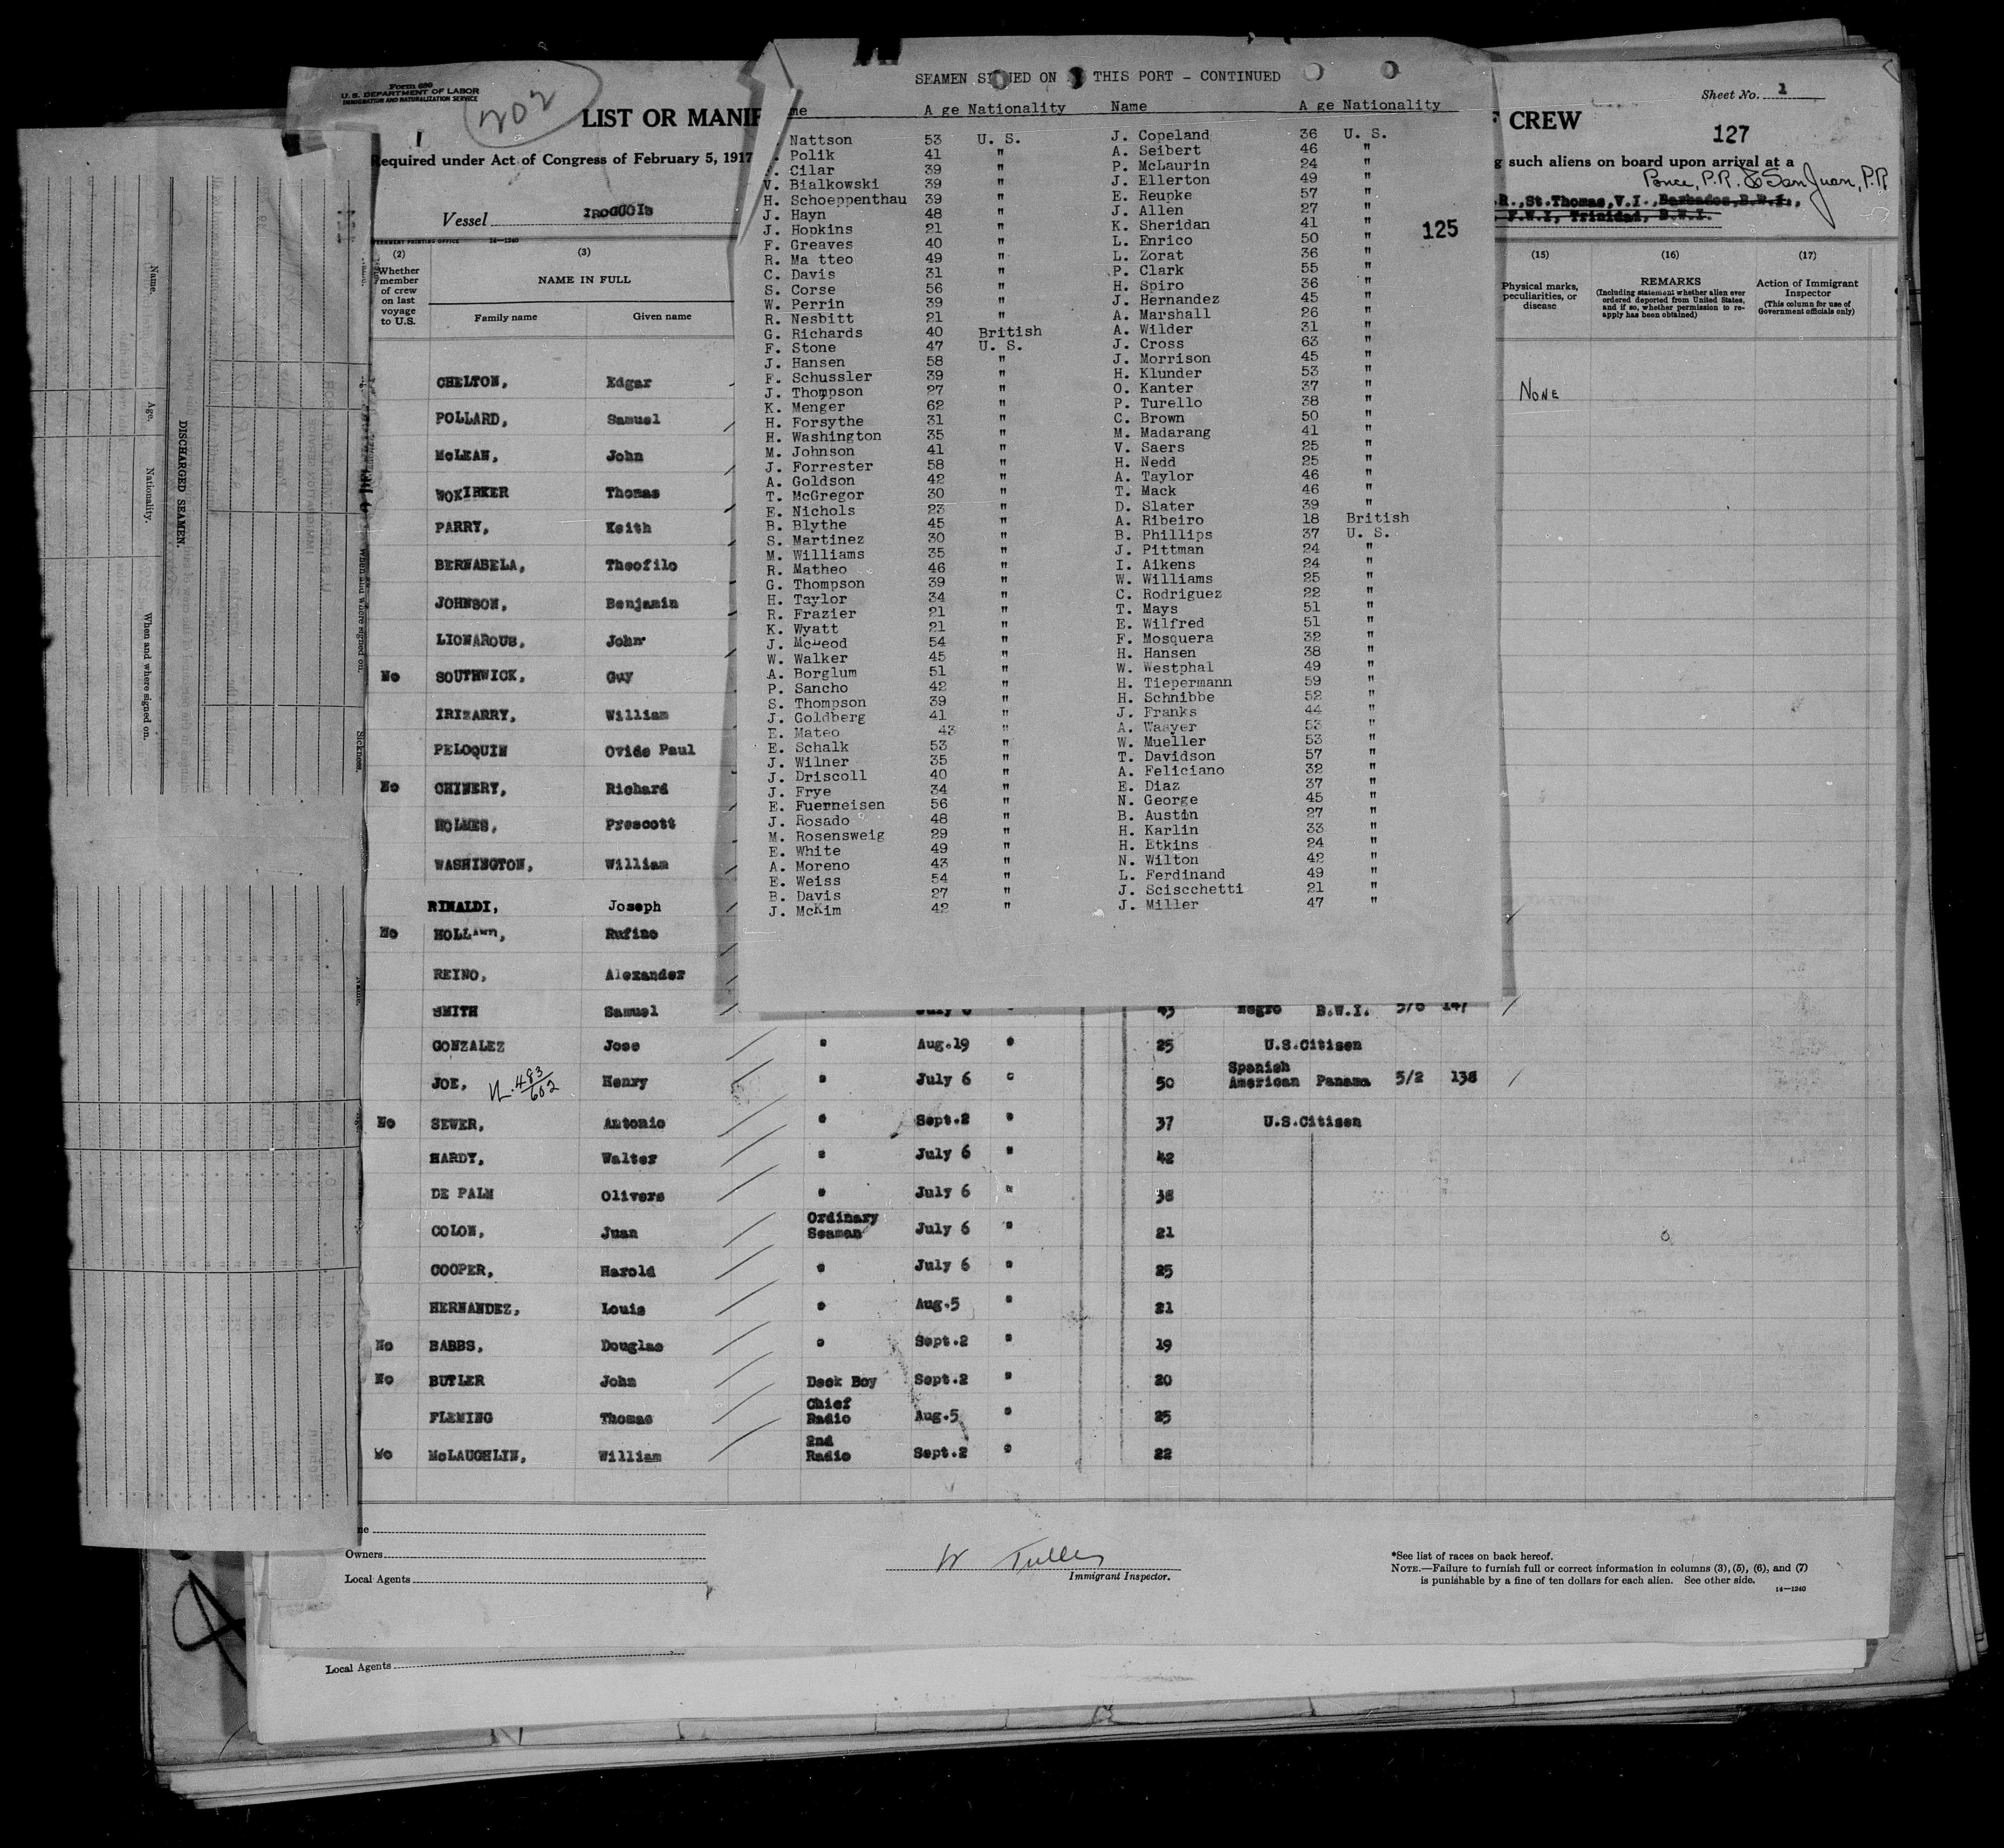 SEAMEN SIGNED ON THIS PORT - CONTINUED
Name Age Nationality Name Age Nationality
Nattson 53 U. S. J. Copeland 36 U. S.
Polik 41 " A. Seibert 46 "
Cilar 39 " P. McLaurin 24 "
V. Bialkowski 39 " J. Ellerton 49 "
H. Schoeppenthau 39 " E. Reupke 57 "
J. Hayn 48 " J. Allen 27 "
J. Hopkins 21 " K. Sheridan 41 "
F. Greaves 40 " L. Enrico 50 "
R. Ma tteo 49 " L. Zorat 36 "
C. Davis 31 " P. Clark 55 "
S. Corse 56 " H. Spiro 36 "
W. Perrin 39 " J. Hernandez 45 "
R. Nesbitt 21 " A. Marshall 26 "
G. Richards 40 British A. Wilder 31 "
F. Stone 47 U. S. J. Cross 63 "
J. Hansen 58 " J. Morrison 45 "
F. Schussler 39 " H. Klunder 53 "
J. Thompson 27 " O. Kanter 37 "
K. Menger 62 " P. Turello 38 "
H. Forsythe 31 " C. Brown 50 "
H. Washington 35 " M. Madarang 41 "
M. Johnson 41 " V. Saers 25 "
J. Forrester 58 " H. Nedd 25 "
A. Goldson 42 " A. Taylor 46 "
T. McGregor 30 " T. Mack 46 "
E. Nichols 23 " D. Slater 39 "
B. Blythe 45 " A. Ribeiro 18 British
S. Martinez 30 " B. Phillips 37 U. S.
M. Williams 35 " J. Pittman 24 "
R. Matheo 46 " I. Aikens 24 "
G. Thompson 39 " W. Williams 25 "
H. Taylor 34 " C. Rodriguez 22 "
R. Frazier 21 " T. Mays 51 "
K. Wyatt 21 " E. Wilfred 51 "
J. McLeod 54 " F. Mosquera 32 "
W. Walker 45 " H. Hansen 38 "
A. Borglum 51 " W. Westphal 49 "
P. Sancho 42 " H. Tiepermann 59 "
S. Thompson 39 " H. Schnibbe 52 "
J. Goldberg 41 " J. Franks 44 "
E. Mateo 43 " A. Wasyer 53 "
E. Schalk 53 " W. Mueller 53 "
J. Wilner 35 " T. Davidson 57 "
J. Driscoll 40 " A. Feliciano 32 "
J. Frye 34 " E. Diaz 37 "
E. Fuerneisen 56 " N. George 45 "
J. Rosado 48 " B. Austin 27 "
M. Rosensweig 29 " H. Karlin 33 "
E. White 49 " H. Etkins 24 "
A. Moreno 43 " N. Wilton 42 "
E. Weiss 54 " L. Ferdinand 49 "
B. Davis 27 " J. Sciscchetti 21 "
J. McKim 42 " J. Miller 47 "
125
Form 680
U. S. DEPARTMENT OF LABOR
IMMIGRATION AND NATURALIZATION SERVICE
202
LIST OR MANIF
CREW
Sheet No. 1
127
Required under Act of Congress of February 5, 1917
such aliens on board upon arrival at a
Ponce, P.R. & San Juan, P.R
Vessel IROQUOIS
R., St.Thomas,V.I.,Barbados,B.W.I.,
F.W.I, Trinidad, B.W.I.
14—1240
(2) (3) (15) (16) (17)
Whether member of crew on last voyage to U.S.
NAME IN FULL
Family name Given name
Physical marks, peculiarities, or disease
REMARKS
(Including statement whether alien ever ordered deported from United States, and if so, whether permission to reapply has been obtained)
Action of Immigrant Inspector
(This column for use of Government officials only)
CHELTON, Edgar NONE
POLLARD, Samuel
McLEAN, John
WOKIRKER Thomas
PARRY, Keith
BERNABELA, Theofilo
JOHNSON, Benjamin
LIONAROUS, John
No SOUTHWICK, Guy
IRIZARRY, William
PELOQUIN Ovide Paul
No CHINERY, Richard
HOLMES, Prescott
WASHINGTON, William
RINALDI, Joseph
No HOLLawn, Rufino
REINO, Alexander
SMITH Samuel " July 6 " 43 Negro B.W.I. 5/6 147
GONZALEZ Jose " Aug.19 " 25 U.S.Citizen
JOE, 483/602 Henry " July 6 " 50 Spanish American Panama 5/2 138
No SEWER, Antonio " Sept.2 " 37 U.S.Citizen
HARDY, Walter " July 6 " 42
DE PALM Olivers " July 6 " 38
COLON, Juan Ordinary Seaman July 6 " 21
COOPER, Harold " July 6 " 25
HERNANDEZ, Louis " Aug.5 " 21
No BABBS, Douglas " Sept.2 " 19
No BUTLER John Deck Boy Sept.2 " 20
FLEMING Thomas Chief Radio Aug.5 " 25
No McLAUGHLIN, William 2nd Radio Sept.2 " 22
Owners
Local Agents
W Tulley
Immigrant Inspector.
*See list of races on back hereof.
NOTE.—Failure to furnish full or correct information in columns (3), (5), (6), and (7)
is punishable by a fine of ten dollars for each alien. See other side.
14—1240
Local Agents
DISCHARGED SEAMEN.
Name. Age. Nationality. When and where signed on.
When and where signed on. Sickness.